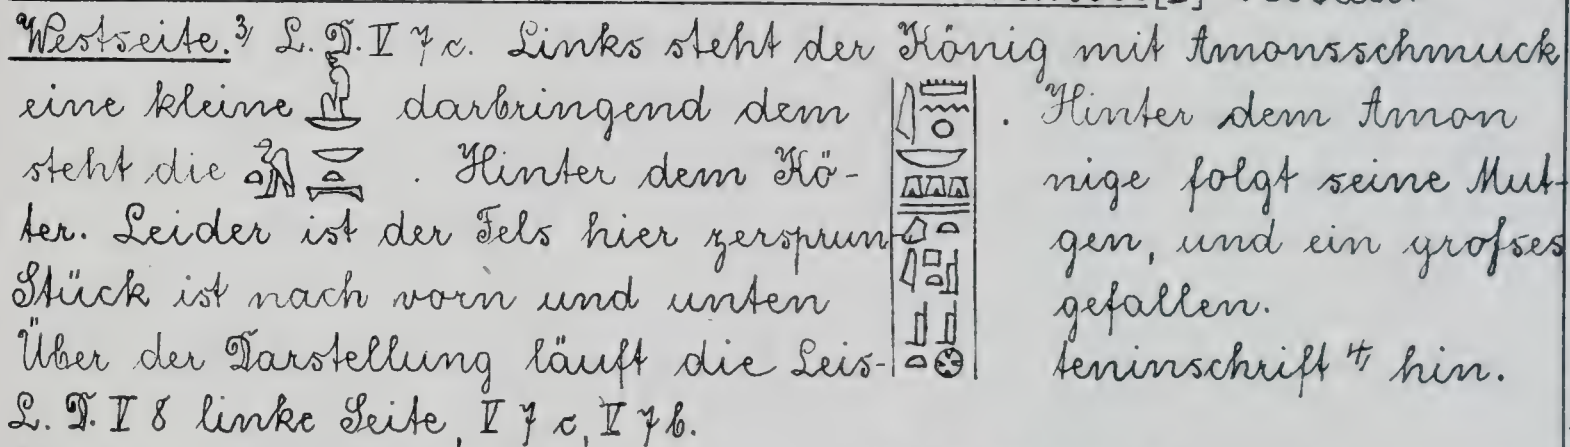 Westseite.³⁾ L. D. V 7 c. Links steht der König mit Amonsschmuck
eine kleine darbringend dem . Hinter dem Amon
steht die . Hinter dem Kö- nige folgt seine Mut-
ter. Leider ist der Fels hier zersprun- gen, und ein groſses
Stück ist nach vorn und unten gefallen.
Über der Darstellung läuft die Leis- teninschrift ⁴⁾ hin.
L. D. V 8 linke Seite, V 7 c, V 7 b.